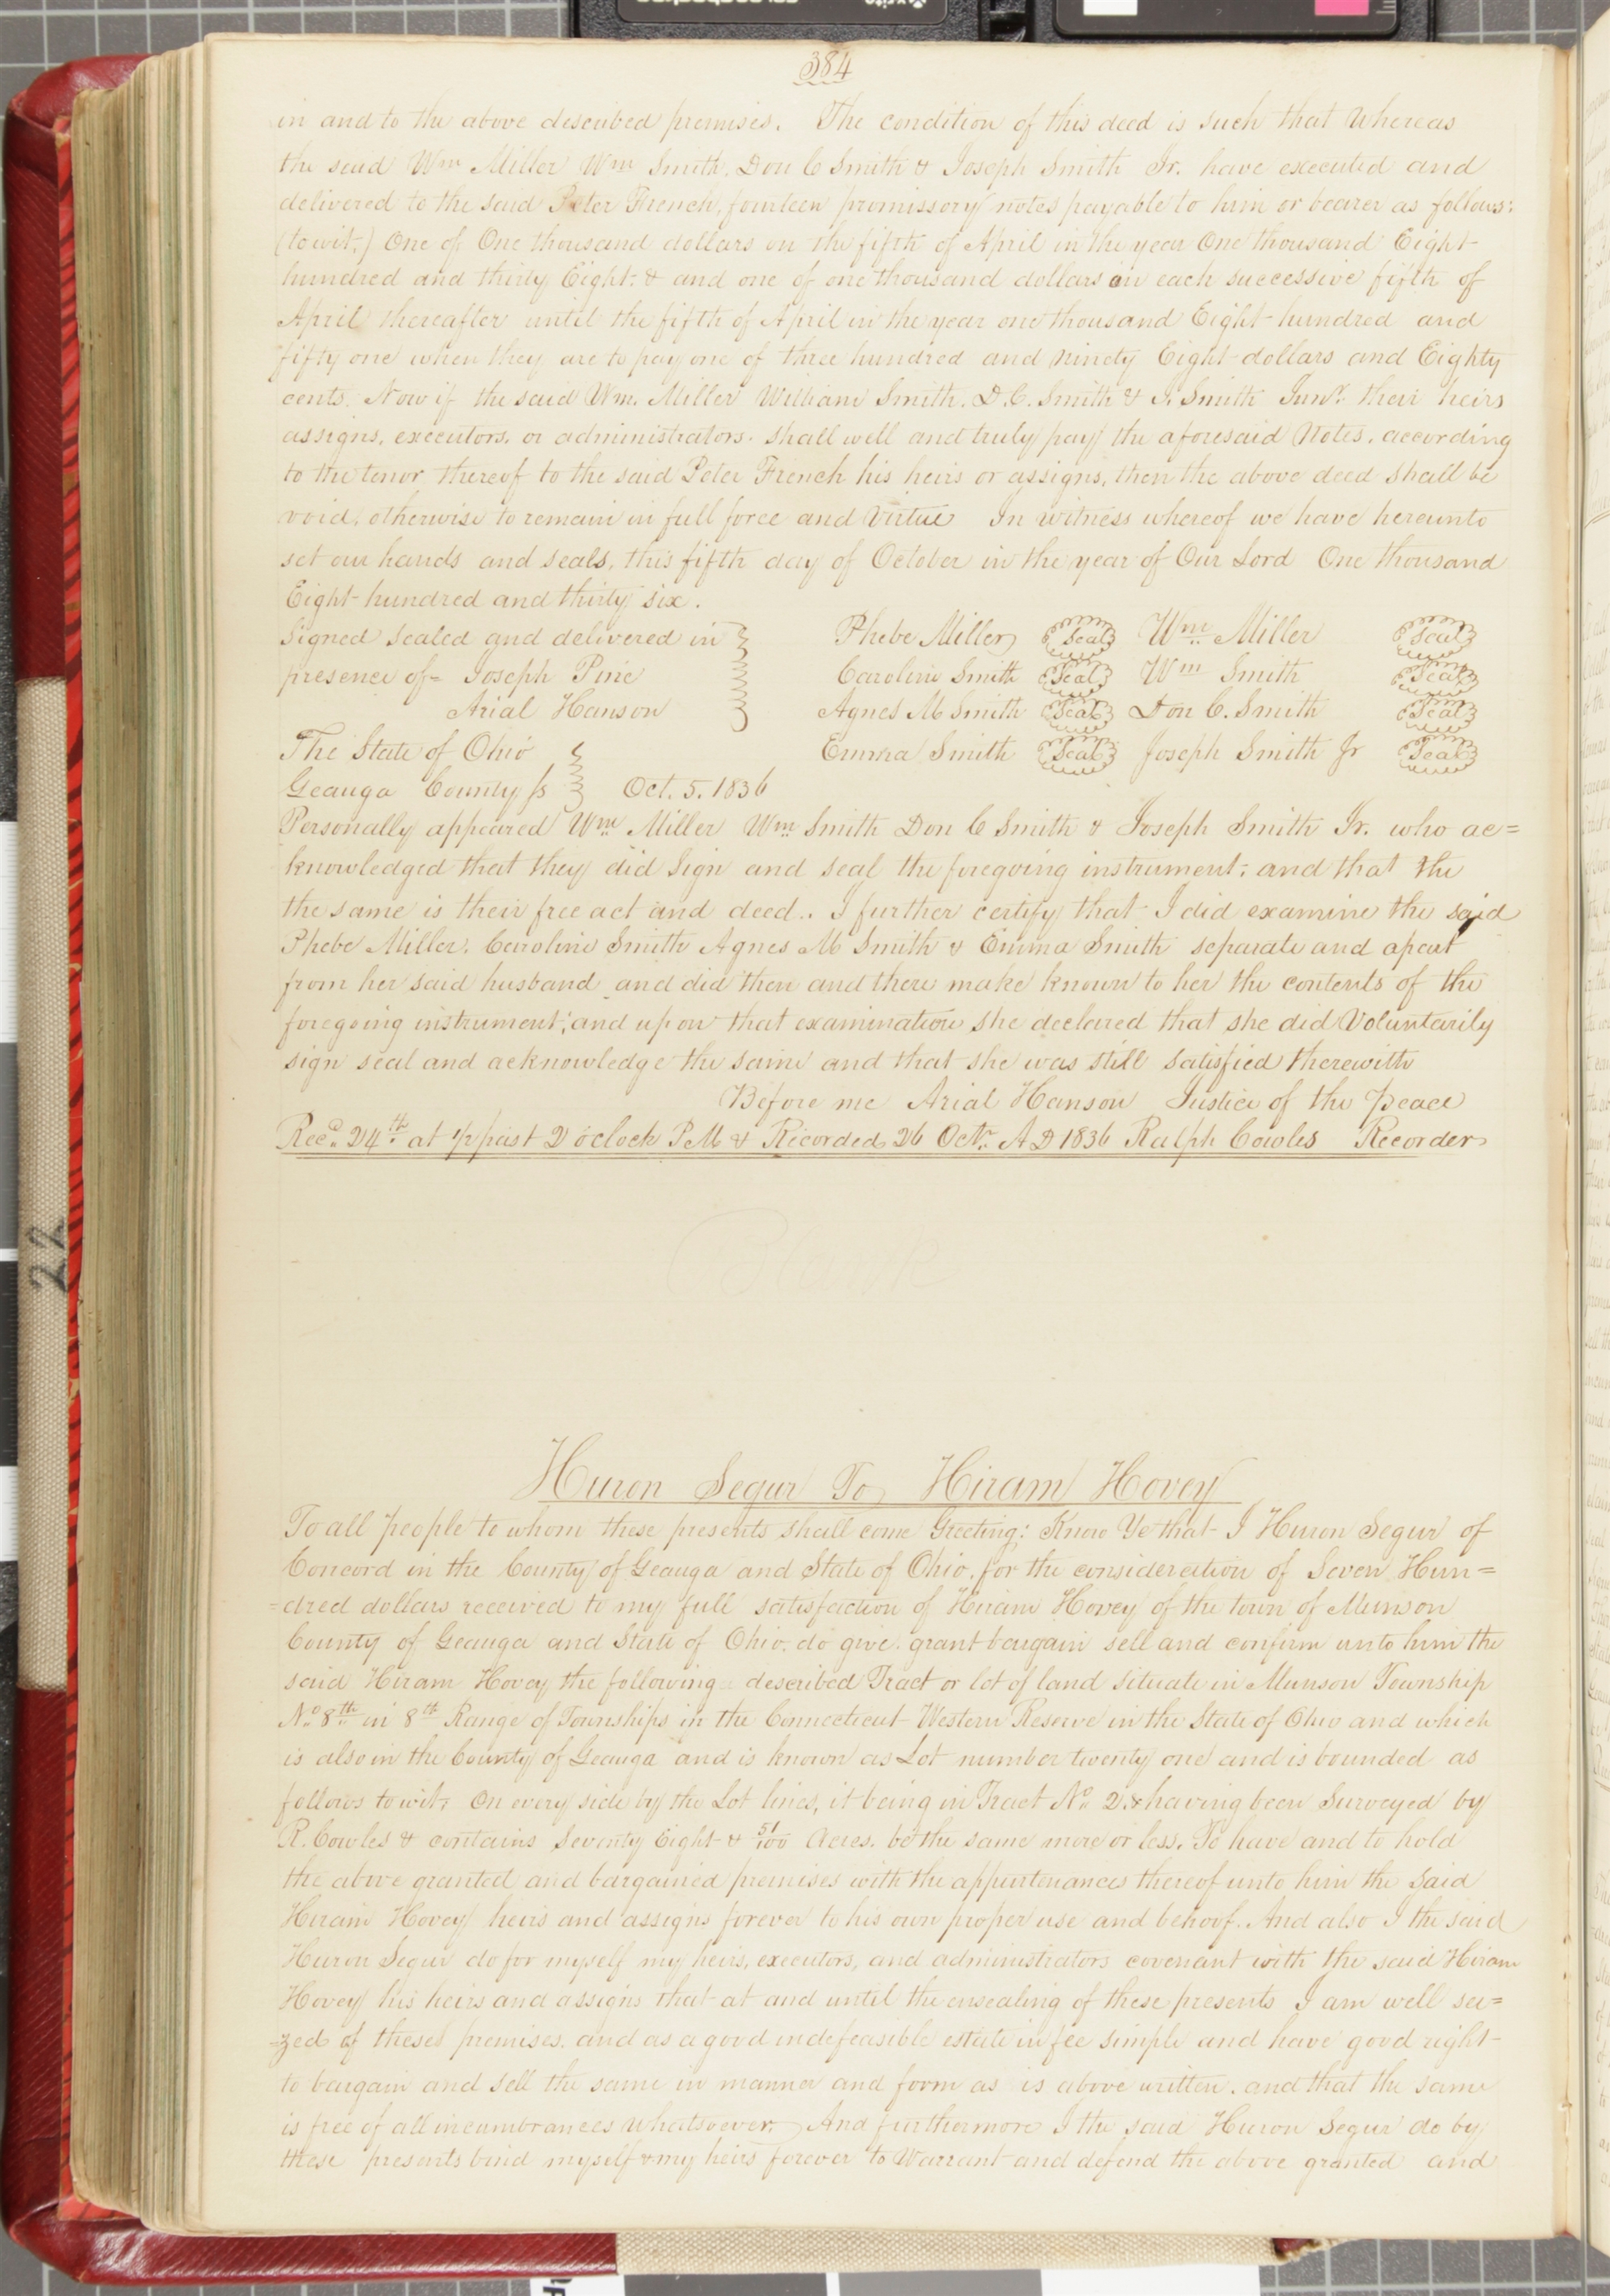 384
in and to the above described premises. The condition of this deed is such that Whereas
the said Wm Miller Wm Smith. Don C Smith & Joseph Smith Jr. have executed and
delivered to the said Peter French, fourteen promissory notes payable to him or bearer as follows:
(towit;) One of One thousand dollars on the fifth of April in the year One thousand Eight
hundred and thirty Eight: & and one of one thousand dollars on each successive fifth of
April thereafter until the fifth of April in the year one thousand Eight hundred and
fifty one when they are to pay one of three hundred and ninety Eight dollars and Eighty
cents. Now if the said Wm. Miller William Smith. D. C. Smith & J. Smith Junr. their heirs
assigns, executors, or administrators. shall well and truly pay the aforesaid Notes. according
to the tenor thereof to the said Peter French his heirs or assigns, then the above deed shall be
void, otherwise to remain in full force and Virtue In witness whereof we have hereunto
set our hands and seals, this fifth day of October in the year of Our Lord One thousand
Eight hundred and thirty six.
Signed sealed and delivered in Phebe Miller Seal Wm Miller Seal
presence of= Joseph Pine Caroline Smith Seal Wm Smith Seal
Arial Hanson Agnes M Smith Seal Don C. Smith Seal
The State of Ohio Emma Smith Seal Joseph Smith Jr Seal
Geauga County ss Oct. 5. 1836
Personally appeared Wm Miller Wm Smith Don C Smith & Joseph Smith Jr. who ac=
knowledged that they did Sign and seal the foregoing instrument; and that the
the same is their free act and deed.. I further certify that I did examine the said
Phebe Miller. Caroline Smith Agnes M Smith & Emma Smith separate and apart
from her said husband and did then and there make known to her the contents of the
foregoing instrument; and upon that examination she declared that she did Voluntarily
sign seal and acknowledge the same and that she was still satisfied therewith
Before me Arial Hanson Justice of the Peace
Recd. 24th at 1/2 past 2 oclock P.M & Recorded 26 Octr. A D 1836 Ralph Cowles Recorder
Blank
Huron Segur To Hiram Hovey
To all people to whom these presents shall come Greeting: Know Ye that I Huron Segur of
Concord in the County of Geauga and State of Ohio, for the consideration of Seven Hun=
=dred dollars received to my full satisfaction of Hiram Hovey of the town of Munson
County of Geauga and State of Ohio. do give. grant bargain sell and confirm unto him the
said Hiram Hovey the following described Tract or lot of land situate in Munson Township
No 8th in 8th Range of Townships in the Connecticut Western Reserve in the State of Ohio and which
is also in the County of Geauga and is known as Lot number twenty one and is bounded as
follows towit; On every side by the Lot lines, it being in Tract No. 2. & having been Surveyed by
R. Cowles & contains Seventy Eight & 51/100 Acres. be the same more or less. To have and to hold
the above granted and bargained premises with the appurtenances thereof unto him the said
Hiram Hovey heirs and assigns forever to his own proper use and behoof. And also I the said
Huron Segur do for myself my heirs, executors, and administrators covenant with the said Hiram
Hovey his heirs and assigns that at and until the ensealing of these presents I am well sei=
=zed of these premises. and as a good indefeasible estate in fee simple and have good right
to bargain and sell the same in manner and form as is above written. and that the same
is free of all incumbrances whatsoever. And furthermore I the said Huron Segur do by
these presents bind myself & my heirs forever to Warrant and defend the above granted and
22